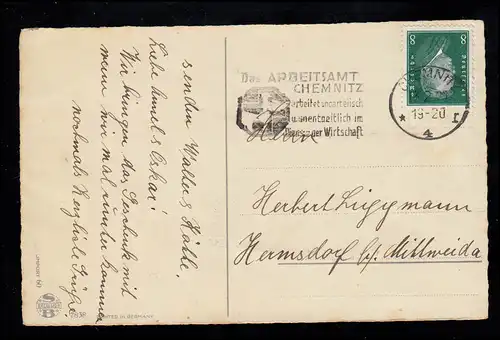 senden Walter & Käthe.
Liebe Anni & Oskar!
Wir bringen das Geschenk mit
wenn wir mal runter kommen
nochmals herzliche Grüße!
Das ARBEITSAMT
CHEMNITZ
arbeitet unparteiisch
u. unentgeltlich im
Dienste der Wirtschaft
CHEMNITZ
19-20
* 4 r
8 8
Deutsches Reich
Herrn
Herbert Liggmann
Hermsdorf b/. Mittweida
SB
PRINTED IN GERMANY